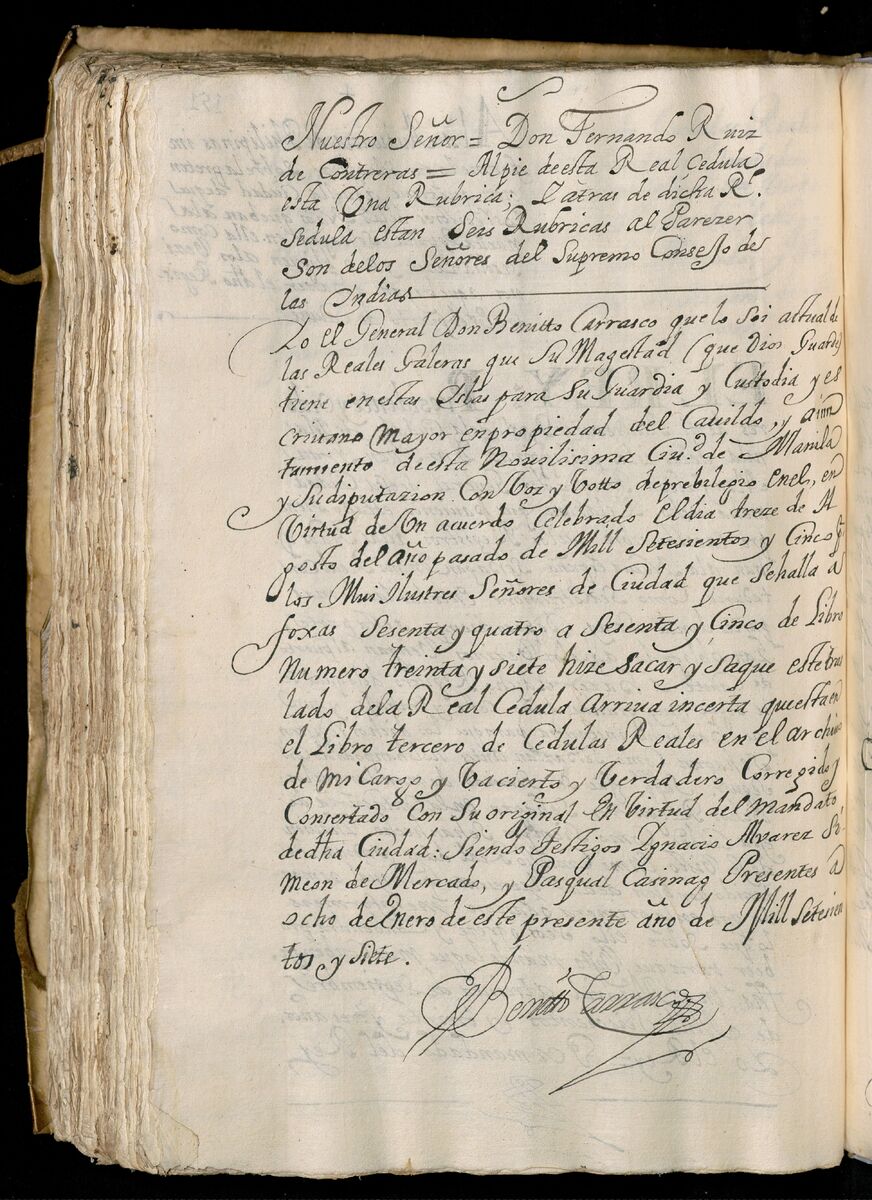 Nuestro Señor = Don Fernando Ruiz
de Contreras = Al pie de esta Real Cedula
esta Una Rubrica; Y atras de dicha Rl.
Sedula estan Seis Rubricas al Parezer
Son delos Señores del Supremo Consejo de
las Indias
Yo el General Don Benitto Carrasco que lo Soi actual de
las Reales Galeras que Su Magestad (que Dios Guarde)
tiene en estas Islas para Su Guardia y Custodia y es
crivano Mayor en propiedad del Cavildo, y aiun
tamiento de esta Novilisima Ciud. de Manila
y Su diputazion Con Voz y Votto de prebilegio enel, en
Virtud de Un acuerdo Celebrado el dia treze de A
gosto del año pasado de Mill Setesientos y Cinco p
los Mui Ilustres Señores de Ciudad que Se halla a
foxas Sesenta y quatro a Sesenta y Cinco de Libro
Numero treinta y siete hize Sacar y Saque este tras
lado dela Real Cedula arriva incerta que esta en
el Libro tercero de Cedulas Reales en el archivo
de mi Cargo y Va cierto y Verdadero Corregido y
Consertado Con Su original En Virtud del Mandato
de dha Ciudad: Siendo testigos Ygnacio Alvarez Si-
meon de Mercado, y Pasqual Casinag Presentes a
ocho de Enero de este presente año de Mill Setesien
tos y siete.
Benitto Carrasco